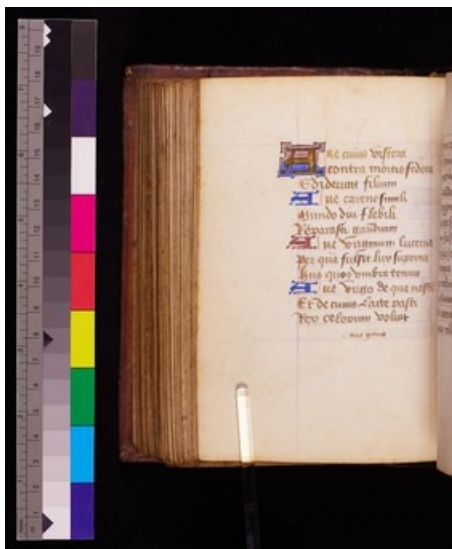 Aue cuius viscera
contra mortis federa
Ediderunt filium
Aue carens simili
Mundo diu flebili
Reparasti gaudium
Aue virginum lucerna
Per quā fulsit lux superna
Hiis quos vmbra tenuit
Aue virgo de qua nasci
Et de cuius lacte pasci
Rex celorum voluit